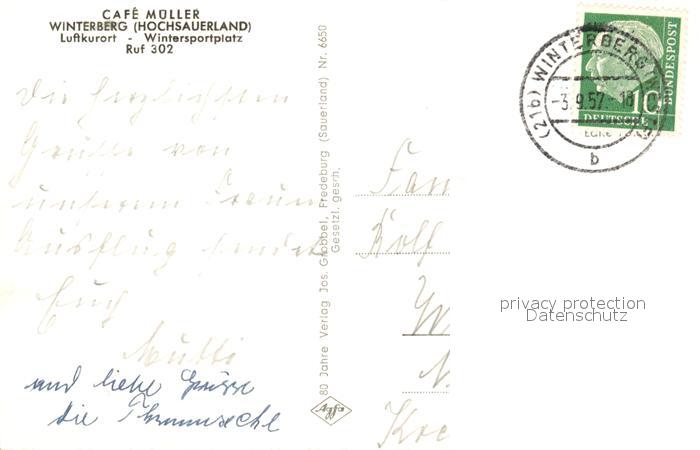 CAFÉ MÜLLER
WINTERBERG (HOCHSAUERLAND)
Luftkurort - Wintersportplatz
Ruf 302
Die herzlichsten
Grüße von
unserem
Ausflug sendet
Euch
Mutti
und liebe Grüsse
die
80 Jahre Verlag Jos. Grobbel, Fredeburg (Sauerland) Nr. 6650
Gesetzl. gesch.
Agfa
(21b) WINTERBERG
-3.9.57.-18
b
10
DEUTSCHE
BUNDESPOST
Fam
Rolf
privacy protection
Datenschutz